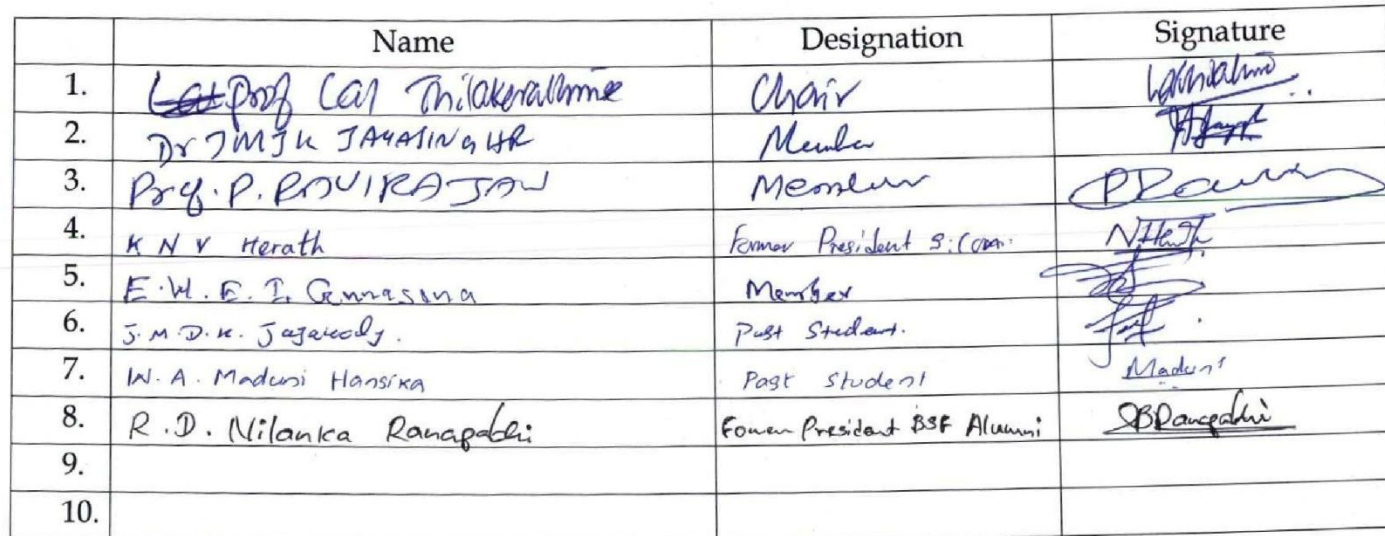 Name Designation Signature
1. Prof Lal Thilakerathne Chair
2. Dr JMJK JAYASINGHE Member
3. Prof. P. RAVIRAJAN Member
4. K N V Herath Former President S. Com. NHerath
5. E.W.E.I. Gunasena Member
6. J.M.D.K. Jayakody. Past Student.
7. W.A. Maduni Hansika Past Student Maduni
8. R.D. Nilanka Ranapakhi Former President BSF Alumni
9.
10.